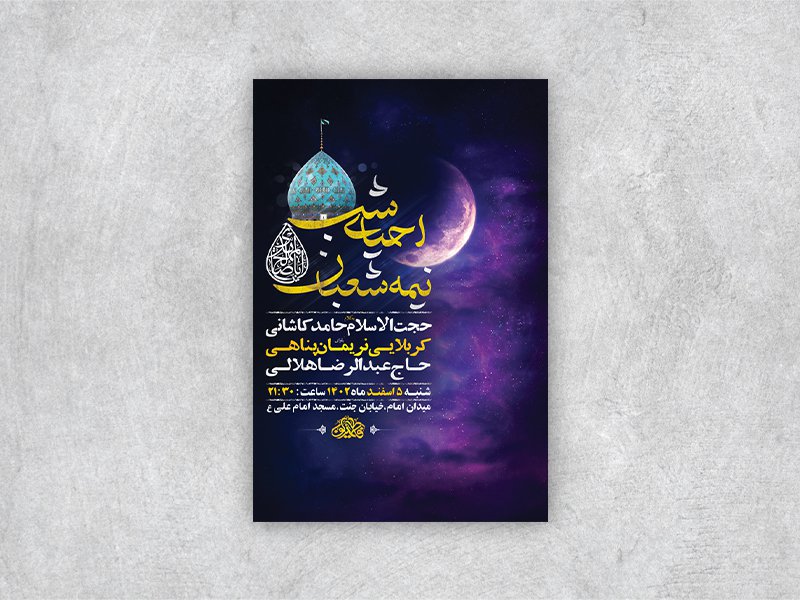 احیای شب
نیمه شعبان
حجت الاسلام حامد کاشانی
کربلایی نریمان پناهی
حاج عبدالرضا هلالی
شنبه ۵ اسفند ماه ۱۴۰۲ ساعت: ۲۱:۳۰
میدان امام، خیابان جنت، مسجد امام علی ع